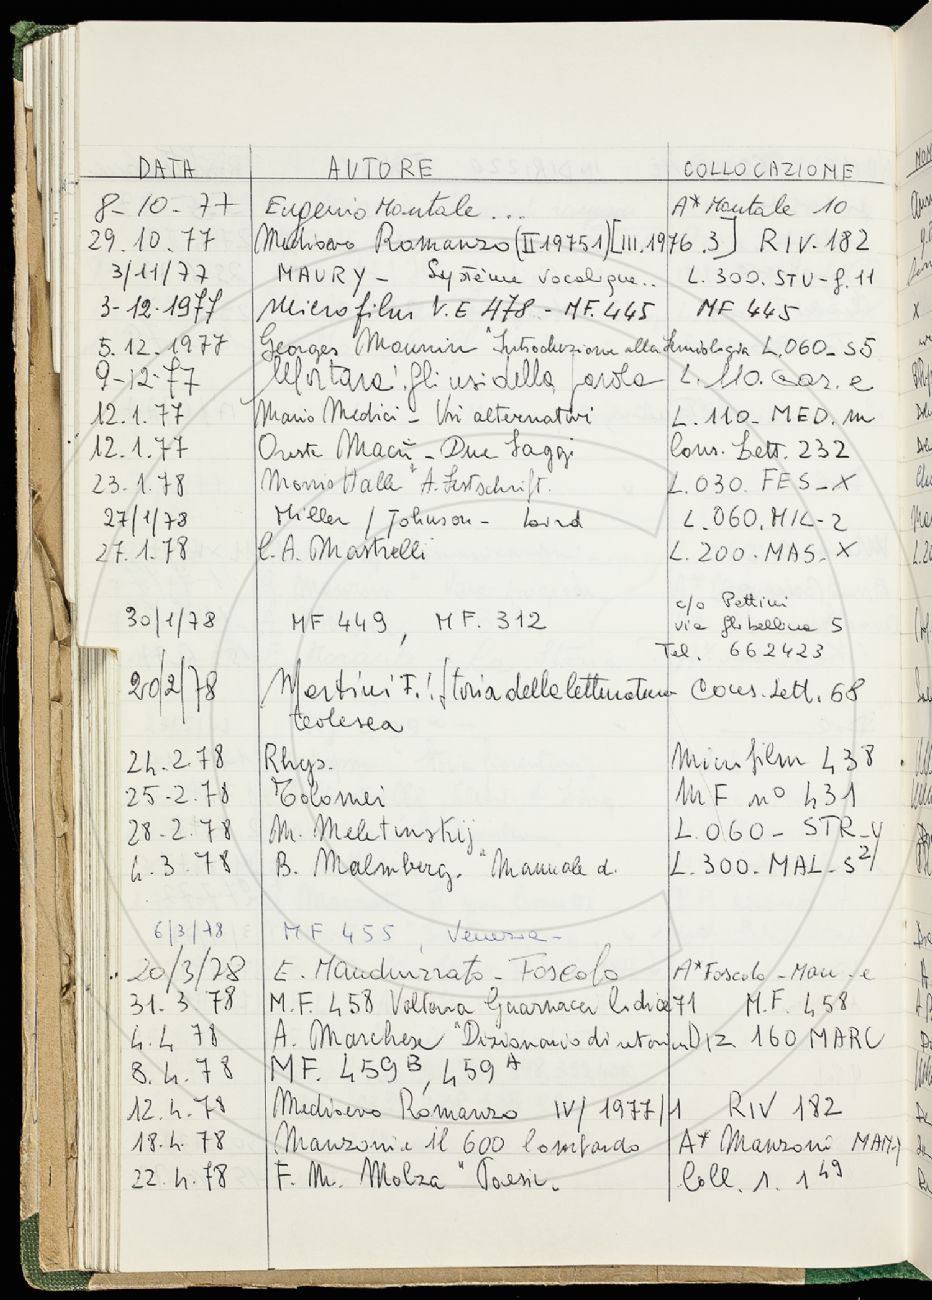 DATA AUTORE COLLOCAZIONE
8-10-77 Eugenio Montale ... A* Montale 10
29.10.77 Medioevo Romanzo (II 1975 1) [III.1976.3] RIV. 182
3/11/77 MAURY - Système vocalique.. L.300.STU-g.11
3-12-1977 Microfilm V.E 478 - MF.445 MF 445
5.12.1977 Georges Mounin "Introduzione alla Semiologia L.060-S5
9-12-77 Mortara: Gli usi della parola L. 110.
12.1.77 Mario Medici - Usi alternativi L.110-MED.m
12.1.77 Oreste Macrì - Due Saggi Cons. Lett. 232
23.1.78 Morris Halle "A Festschrift. L.030. FES-X
27/1/78 Miller / Johnson - Laird L.060.MIL-2
27.1.78 C.A. Mastrelli L.200.MAS-X
30/1/78 MF 449, MF. 312 c/o Pettini
via Ghibellina 5
Tel. 662423
20/2/78 Martini F.: Storia della letteratura Cons. Lett. 68
tedesca
24.2.78 Rhys. Microfilm 438
25-2.78 Tolomei MF nº 431
28-2.78 M. Meletinskij L.060- STR-4
4.3.78 B. Malmberg. "Manuale d. L.300.MAL-S2/
6/3/78 MF 455, Venezia-
20/3/78 E. Mandruzzato - Foscolo A* Foscolo - Man -e
31.3 78 M.F. 458 Voltana Guarnacci 71 M.F. 458
4.4 78 A. Marchese "Dizionario di retorica Diz 160 MARC
8.4.78 MF. 459 B, 459 A
12.4.78 Medioevo Romanzo IV/1977/1 RIV 182
18.4.78 Manzoni e il 600 lombardo A* Manzoni
22.4.78 F. M. Molza "Poesie. Coll. 1. 1 49